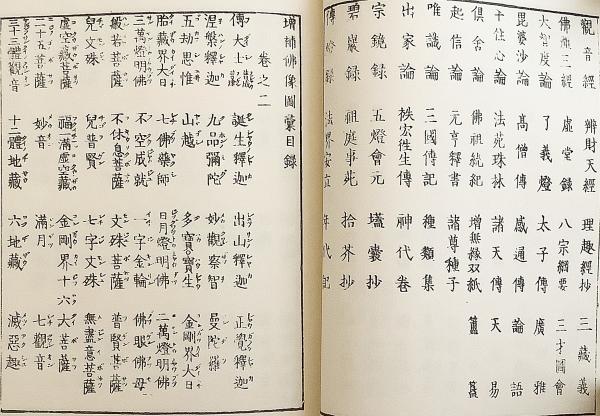 觀音經 辨財天經 理趣經抄 三藏義
佛祖三經 虛堂録 八宗綱要 三才圖會
大智度論 了義燈 太子傳 廣雅
毘婆沙論 高僧傳 感通傳 論語
十住心論 法苑珠林 諸天傳 易
俱舍論 佛祖統紀 增無緣双紙 簠簋
起信論 元亨釋書 諸尊種子
唯識論 三國傳記 種類集
出家論 袾宏徃生傳 神代卷
宗鏡録 五燈會元 壒囊抄
碧巖録 祖庭事苑 拾芥抄
傳燈録 法界安立 年代記
增補佛像圖彙目録
卷之二
傅大士 誕生釋迦 出山釋迦 正覺釋迦
涅槃釋迦 九品彌陀 妙觀察智 曼陀羅
五劫思惟 山越 多寶寶生 金剛界大日
胎藏界大日 七佛藥師 日月燈明佛 二萬燈明佛
三萬燈明佛 不空成就 一字金輪 佛眼佛母
般若菩薩 不休息菩薩 文殊菩薩 普賢菩薩
兒文殊 兒普賢 七字文殊 無盡意菩薩
虛空藏菩薩 福滿虛空藏 金剛界十六大菩薩
二十五菩薩 妙音 滿月 七觀音
三十三體觀音 十二體地藏 六地藏 滅惡趣